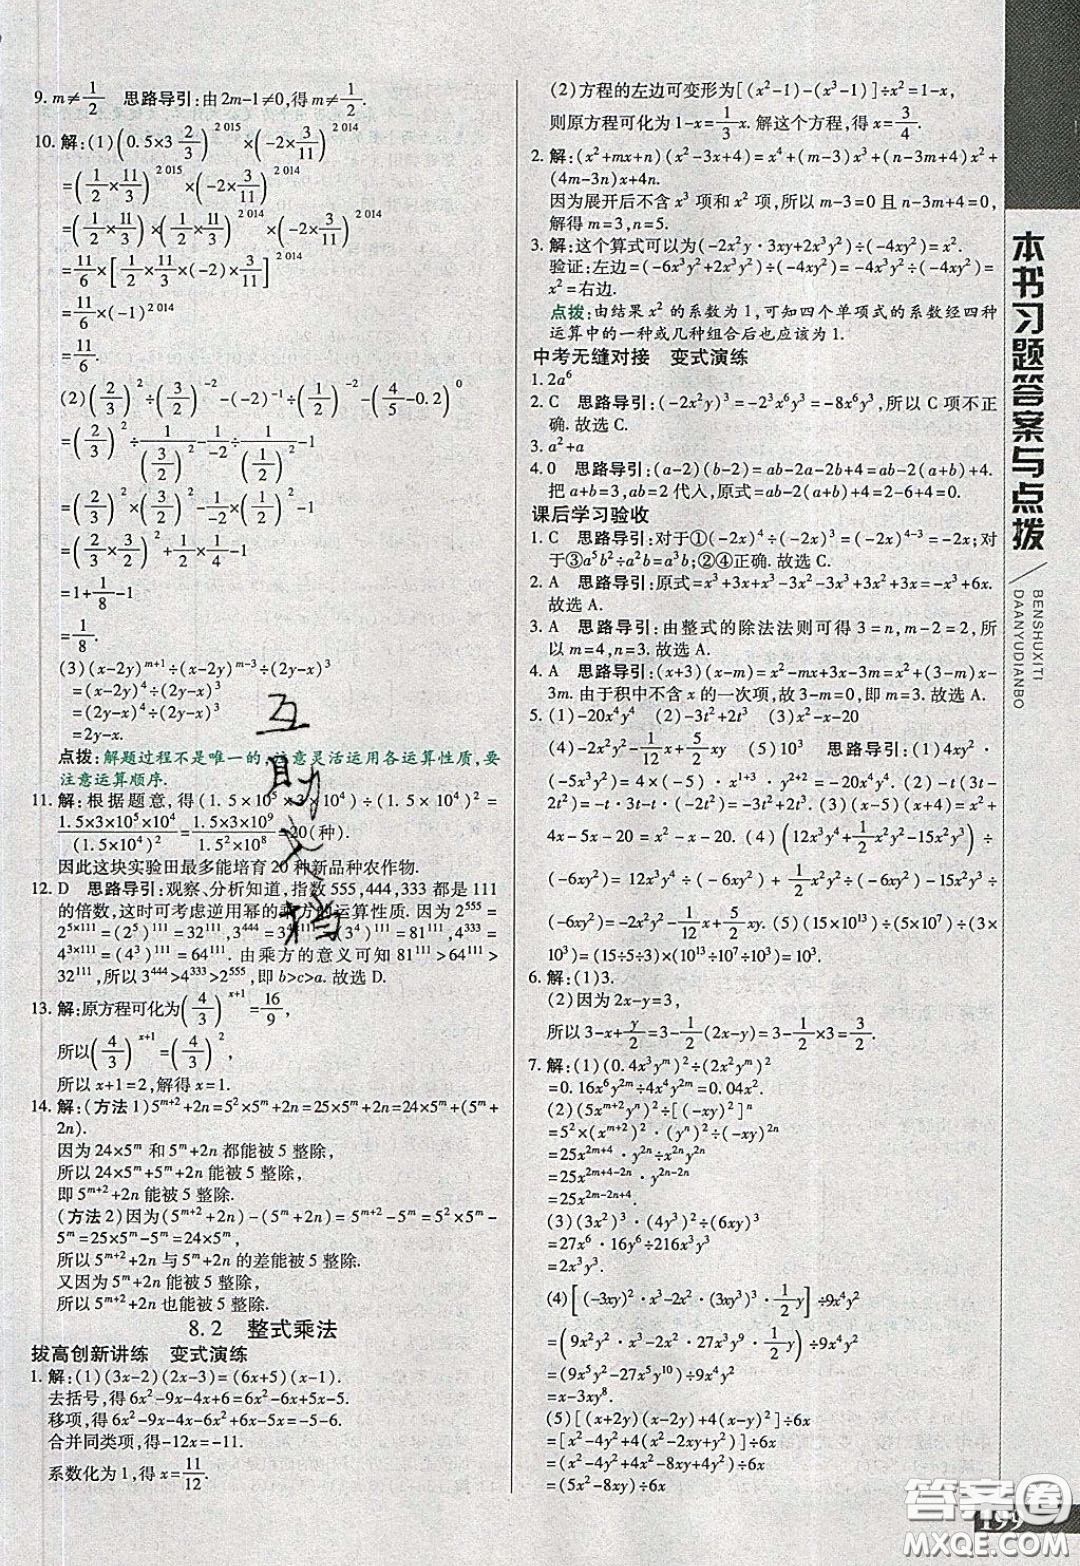 9. m≠1/2　思路导引:由2m-1≠0,得m≠1/2.
10. 解:(1)(0.5×3 2/3)^2015×(-2×3/11)^2014
=(1/2×11/3)^2015×(-2×3/11)^2014
=(1/2×11/3)×(1/2×11/3)^2014×(-2×3/11)^2014
=11/6×[1/2×11/3×(-2)×3/11]^2014
=11/6×(-1)^2014
=11/6.
(2)(2/3)^2÷(3/2)^-2-(-2)^-1-(4/5-0.2)^0
=(2/3)^2÷1/(3/2)^2-1/(-2)-1
=(2/3)^2×(3/2)^2+1/2-1
=(2/3×3/2)^2+1/2-1
=1+1/8-1
=1/8.
(3)(x-2y)^m+1÷(x-2y)^m-3÷(2y-x)^3
=(x-2y)^4÷(2y-x)^3
=(2y-x)^4÷(2y-x)^3
=2y-x.
点拨:解题过程不是唯一的,注意灵活运用各运算性质,要
注意运算顺序.
11. 解:根据题意,得(1.5×10^5×3×10^4)÷(1.5×10^4)^2=
1.5×3×10^5×10^4/(1.5×10^4)^2=1.5×3×10^9/1.5^2×10^8=20(种).
因此这块实验田最多能培育20种新品种农作物.
12. D　思路导引:观察、分析知道,指数555,444,333都是111
的倍数,这时可考虑逆用幂的乘方的运算性质.因为2^555=
2^5×111=(2^5)^111=32^111,3^444=3^4×111=(3^4)^111=81^111,4^333=
4^3×111=(4^3)^111=64^111.由乘方的意义可知81^111>64^111>
32^111,所以3^444>4^333>2^555,即b>c>a.故选D.
13. 解:原方程可化为(4/3)^x+1=16/9,
所以(4/3)^x+1=(4/3)^2,
所以x+1=2,解得x=1.
14. 解:(方法1)5^m+2+2n=5^2×5^m+2n=25×5^m+2n=24×5^m+(5^m+
2n).
因为24×5^m和5^m+2n都能被5整除,
所以24×5^m+5^m+2n能被5整除,
即5^m+2+2n能被5整除.
(方法2)因为(5^m+2+2n)-(5^m+2n)=5^m+2-5^m=5^2×5^m-
5^m=25×5^m-5^m=24×5^m,
所以5^m+2+2n与5^m+2n的差能被5整除,
又因为5^m+2n能被5整除,
所以5^m+2+2n也能被5整除.
8.2　整式乘法
拔高创新讲练　变式演练
1. 解:(1)(3x-2)(2x-3)=(6x+5)(x-1).
去括号,得6x^2-9x-4x+6=6x^2-6x+5x-5.
移项,得6x^2-9x-4x-6x^2+6x-5x=-5-6.
合并同类项,得-12x=-11.
系数化为1,得x=11/12.
(2)方程的左边可变形为[(x^2-1)-(x^3-1)]÷x^2=1-x,
则原方程可化为1-x=1/3x.解这个方程,得x=3/4.
2. 解:(x^2+mx+n)(x^2-3x+4)=x^4+(m-3)x^3+(n-3m+4)x^2+
(4m-3n)x+4n.
因为展开后不含x^3项和x^2项,所以m-3=0且n-3m+4=0,
解得m=3,n=5.
3. 解:这个算式可以为(-2x^2y·3xy+2x^3y^2)÷(-4xy^2)=x^2.
验证:左边=(-6x^3y^2+2x^3y^2)÷(-4xy^2)=-4x^3y^2÷(-4xy^2)=
x^2=右边.
点拨:由结果x^2的系数为1,可知四个单项式的系数经四种
运算中的一种或几种组合后也应该为1.
中考无缝对接　变式演练
1. 2a^6
2. C　思路导引:(-2x^2y)^3=-2^3x^6y^3=-8x^6y^3,所以C项不正
确.故选C.
3. a^2+a
4. 0　思路导引:(a-2)(b-2)=ab-2a-2b+4=ab-2(a+b)+4.
把a+b=3,ab=2代入,原式=ab-2(a+b)+4=2-6+4=0.
课后学习验收
1. C　思路导引:对于①(-2x)^4÷(-2x)^3=(-2x)^4-3=-2x;对
于③a^5b^2÷a^2b=a^3b;②④正确.故选C.
2. A　思路导引:原式=x^3+3x+x^3-3x^2-3x^3+3x^2+3x=-x^3+6x.
故选A.
3. A　思路导引:由整式的除法法则可得3=n,m-2=2,所
以m=4,n=3.故选A.
4. A　思路导引:(x+3)(x-m)=x^2-mx+3x-3m=x^2+(3-m)x-
3m.由于积中不含x的一次项,故3-m=0,即m=3.故选A.
5. (1)-20x^4y^4　(2)-3t^2+2t^3　(3)x^2-x-20
(4)-2x^2y^2-1/12x+5/2xy　(5)10^3　思路导引:(1)4xy^2·
(-5x^3y^2)=4×(-5)·x^1+3y^2+2=-20x^4y^4.(2)-t(3t-
2t^2)=-t·3t-t·(-2t^2)=-3t^2+2t^3.(3)(x-5)(x+4)=x^2+
4x-5x-20=x^2-x-20.(4)(12x^3y^4+1/2x^2y^2-15x^2y^3)÷
(-6xy^2)=12x^3y^4÷(-6xy^2)+1/2x^2y^2÷(-6xy^2)-15x^2y^3÷
(-6xy^2)=-2x^2y^2-1/12x+5/2xy.(5)(15×10^13)÷(5×10^7)÷(3×
10^3)=(15÷5÷3)×(10^13÷10^7÷10^3)=10^3.
6. 解:(1)3.
(2)因为2x-y=3,
所以3-x+y/2=3-1/2(2x-y)=3-1/2×3=3/2.
7. 解:(1)(0.4x^3y^m)^2÷(2x^2y^m)^2
=0.16x^6y^2m÷4x^4y^2m=0.04x^2.
(2)(5x^m+2y^n)^2÷[(-xy)^2]^n
=5^2×(x^m+2)^2·(y^n)^2÷(-xy)^2n
=25x^2m+4·y^2n÷x^2ny^2n
=25x^2m+4-2n·y^2n-2n
=25x^2m-2n+4.
(3)(3x^2)^3·(4y^3)^2÷(6xy)^3
=27x^6·16y^6÷216x^3y^3
=2x^3y^3.
(4)[(-3xy)^2·x^3-2x^2·(3xy^3)^3·1/2y]÷9x^4y^2
=(9x^2y^2·x^3-2x^2·27x^3y^9·1/2y)÷9x^4y^2
=(9x^5y^2-27x^5y^10)÷9x^4y^2
=x-3xy^8.
(5)[(x+2y)(x-2y)+4(x-y)^2]÷6x
=[x^2-4y^2+4(x^2-2xy+y^2)]÷6x
=(x^2-4y^2+4x^2-8xy+4y^2)÷6x
=(5x^2-8xy)÷6x
本书习题答案与点拨
BENSHUXITI
DAANYUDIANBO
互助文档
答案圈
MXQE.COM
199